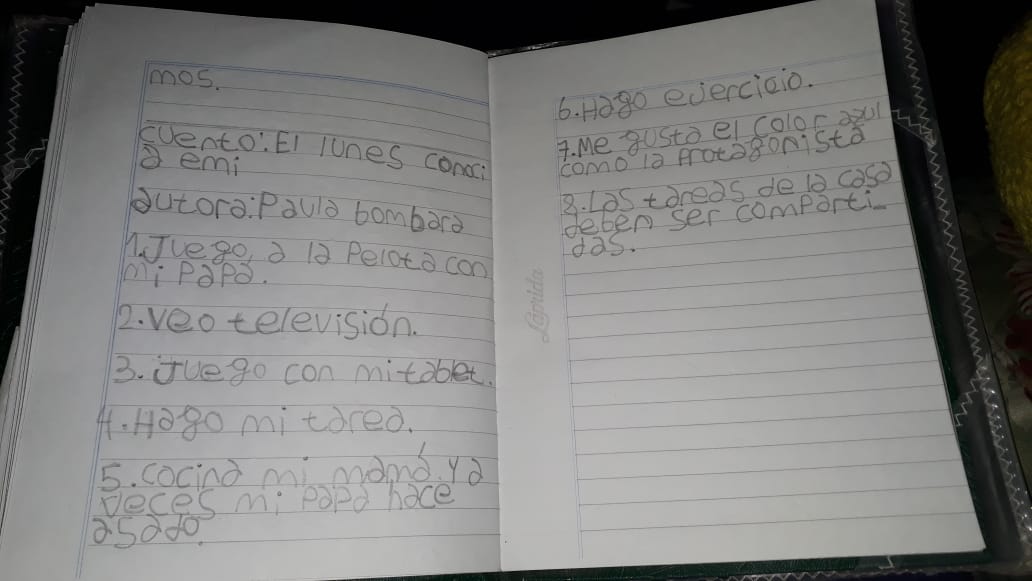 mos.
cuento: El lunes conoci
a emi
autora: Paula bombara
1. Juego, a la Pelota con
mi PaPa.
2. veo televisión.
3. Juego con mi tablet.
4. Hago mi tarea.
5. cocina mi mamá. Y a
veces mi papa hace
asado.
6. Hago ejercicio.
7. Me gusta el color azul
como la Protagonista
8. Las tareas de la casa
deben ser comparti_
das.
Laprida